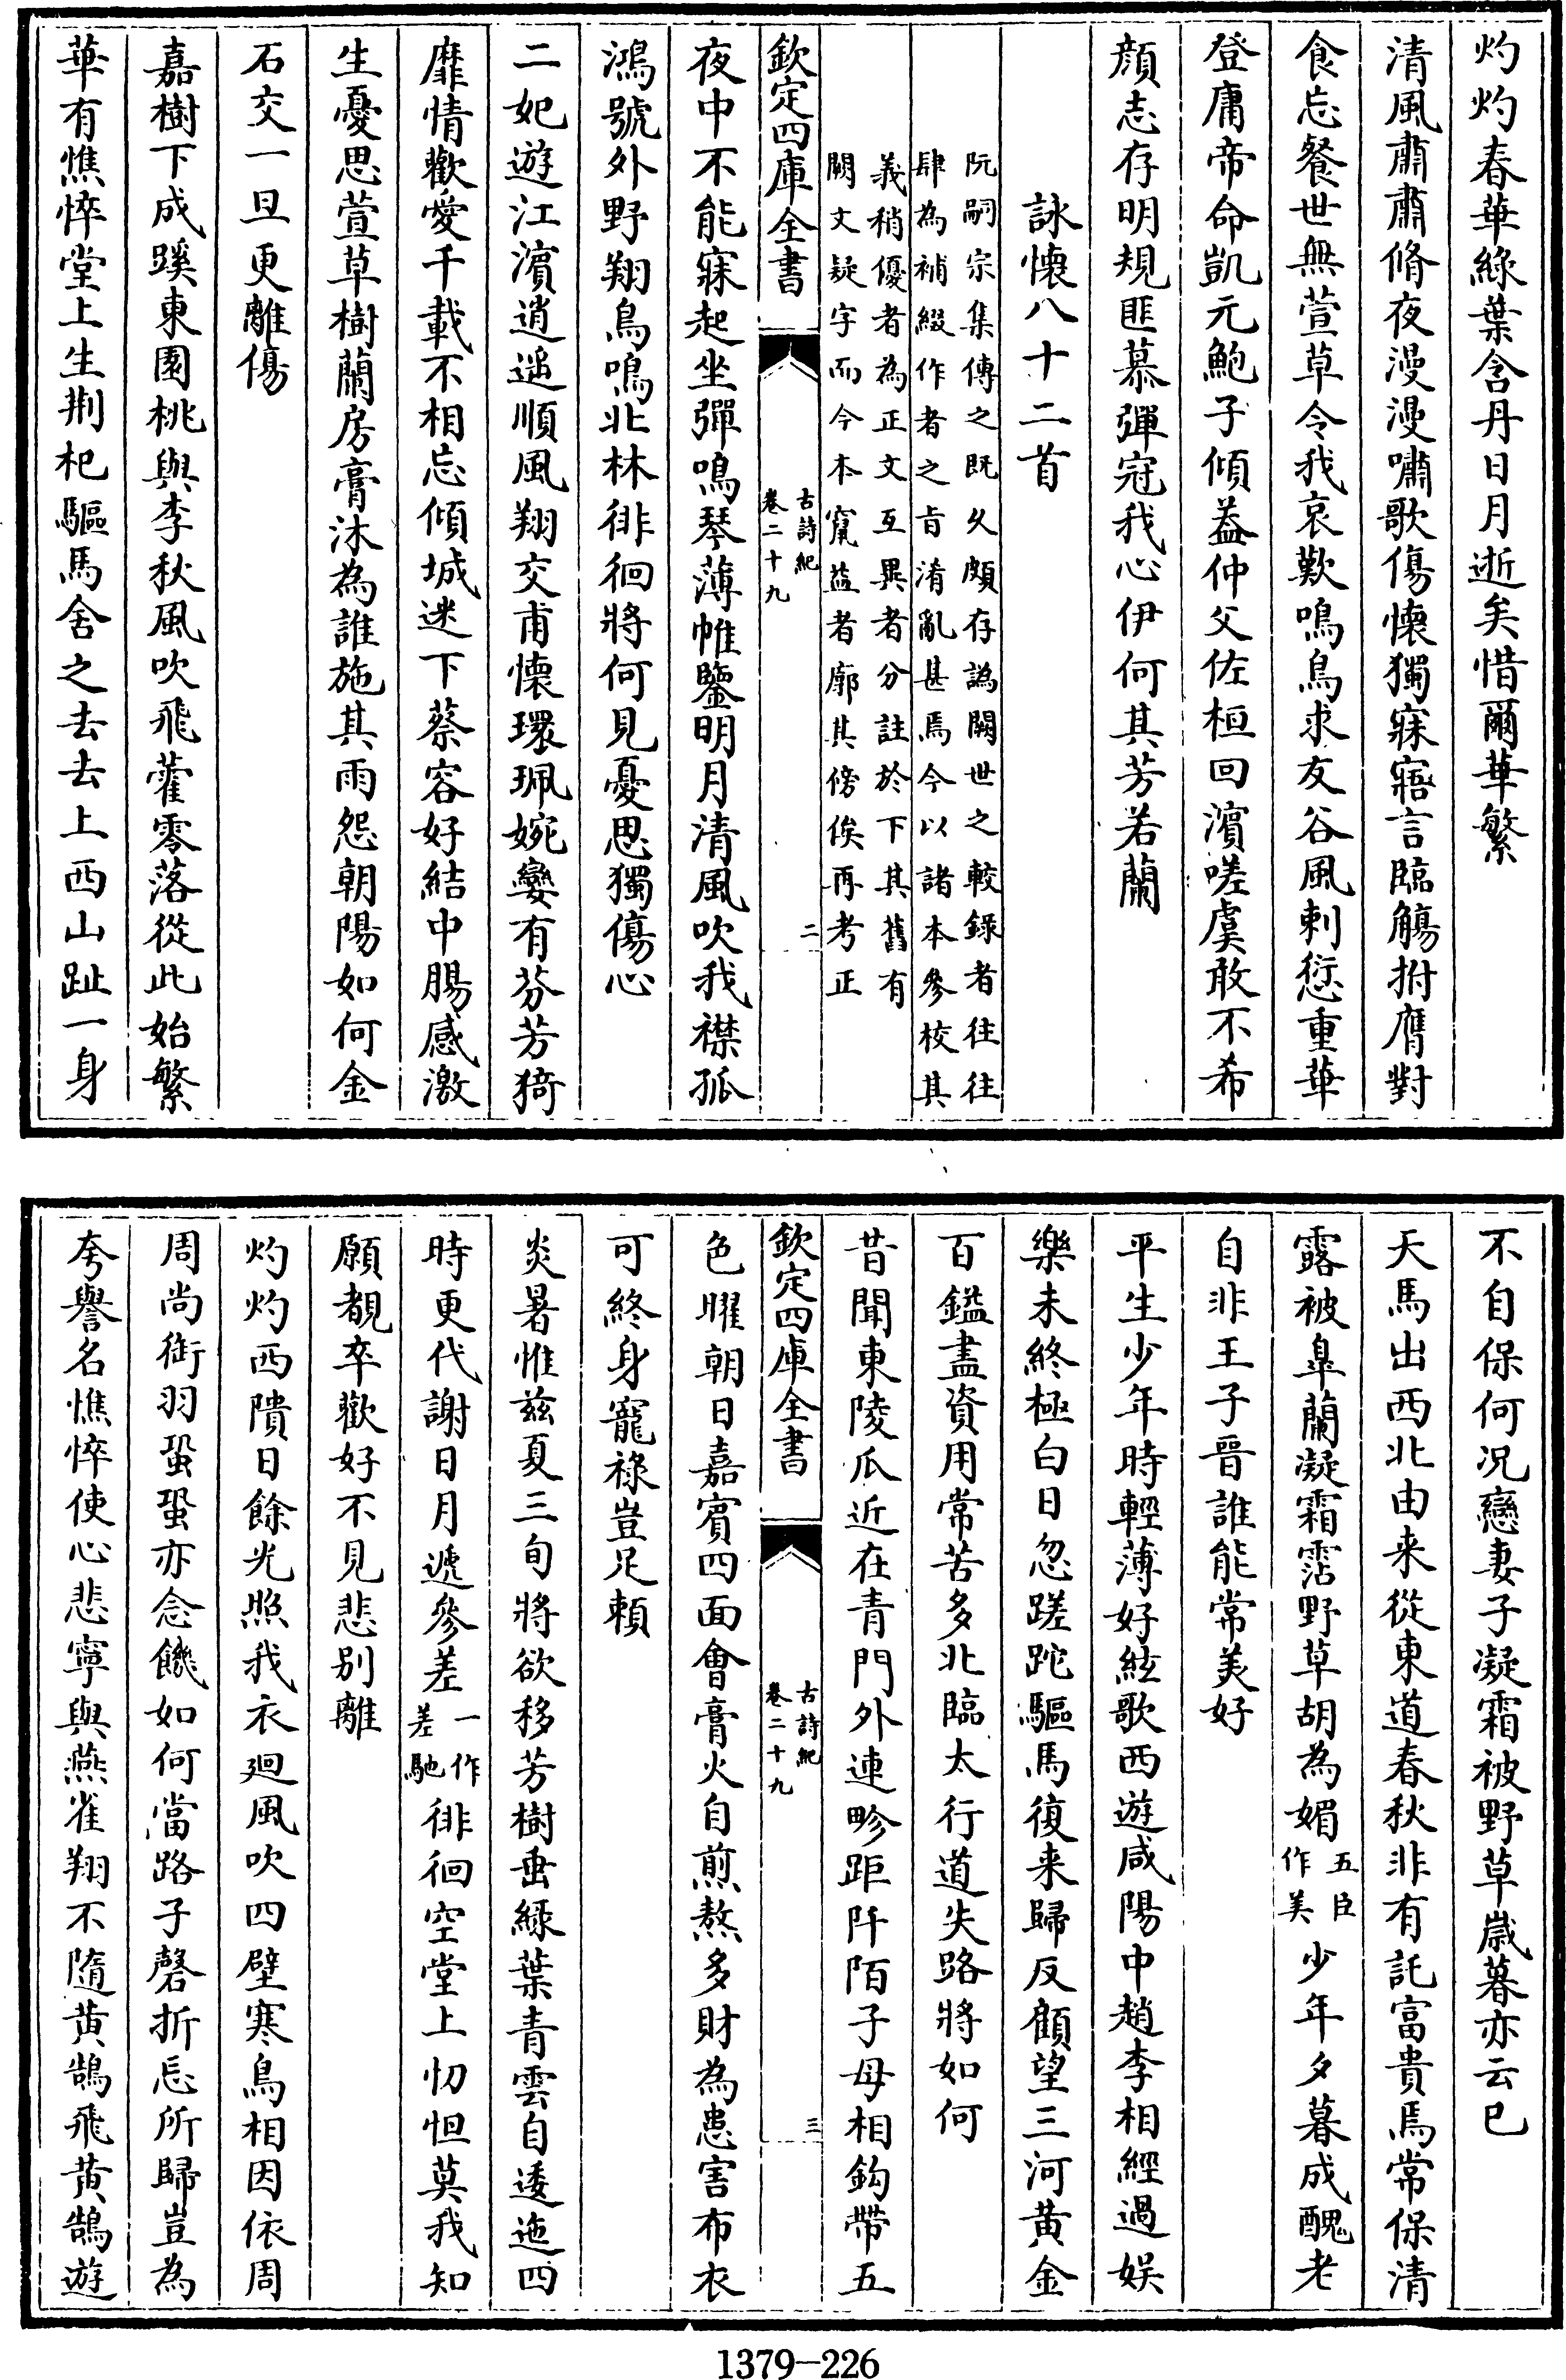 灼灼春華綠葉含丹日月逝矣惜爾華繁
清風肅肅脩夜漫漫嘯歌傷懷獨寐寤言臨觴拊膺對
食忘餐世無萱草令我哀歎鳴鳥求友谷風刺愆重華
登庸帝命凱元鮑子傾葢仲父佐桓回濱嗟虞敢不希
顔志存明規匪慕彈冠我心伊何其芳若蘭
詠懷八十二首
阮嗣宗集傳之既乆頗存譌闕世之較錄者往往
肆為補綴作者之旨淆亂甚焉今以諸本參校其
義稍優者為正文互異者分註於下其舊有
闕文疑字而今本竄益者廓其傍俟再考正
欽定四庫全書
古詩紀
卷二十九
二
夜中不能寐起坐彈鳴琴薄帷鑒明月清風吹我襟孤
鴻號外野翔鳥鳴北林徘徊將何見憂思獨傷心
二妃遊江濱逍遥順風翔交甫懷環珮婉孌有芬芳猗
靡情歡愛千載不相忘傾城迷下蔡容好結中腸感激
生憂思萱草樹蘭房膏沐為誰施其雨怨朝陽如何金
石交一旦更離傷
嘉樹下成蹊東園桃與李秋風吹飛藿零落從此始繁
華有憔悴堂上生荆杞驅馬舍之去去上西山趾一身
不自保何况戀妻子凝霜被野草嵗暮亦云已
天馬出西北由来從東道春秋非有託富貴焉常保清
露被臯蘭凝霜霑野草胡為媚五臣作美少年夕暮成醜老
自非王子晉誰能常美好
平生少年時輕薄好絃歌西遊咸陽中趙李相經過娱
樂未終極白日忽蹉跎驅馬復来歸反顧望三河黄金
百鎰盡資用常苦多北臨太行道失路將如何
昔聞東陵瓜近在青門外連畛距阡陌子母相鈎帶五
欽定四庫全書
古詩紀
卷二十九
三
色曜朝日嘉賓四面會膏火自煎熬多財為患害布衣
可終身寵祿豈足頼
炎暑惟兹夏三旬將欲移芳樹垂綠葉青雲自逶迤四
時更代謝日月遞參差一作差馳徘徊空堂上忉怛莫我知
願覩卒歡好不見悲别離
灼灼西隤日餘光照我衣廻風吹四壁寒鳥相因依周
周尚銜羽蛩蛩亦念饑如何當路子磬折忘所歸豈為
夸譽名憔悴使心悲寧與燕雀翔不隨黄鵠飛黄鵠遊
1379-226